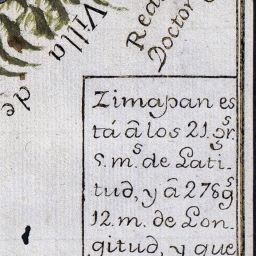 Villa
de
Rea
Doctor
Zimapan es
tá â los 21. gr.s
5. m.s de Lati-
tud, y â 278 g.s
12. m. de Lon-
gitud, y que